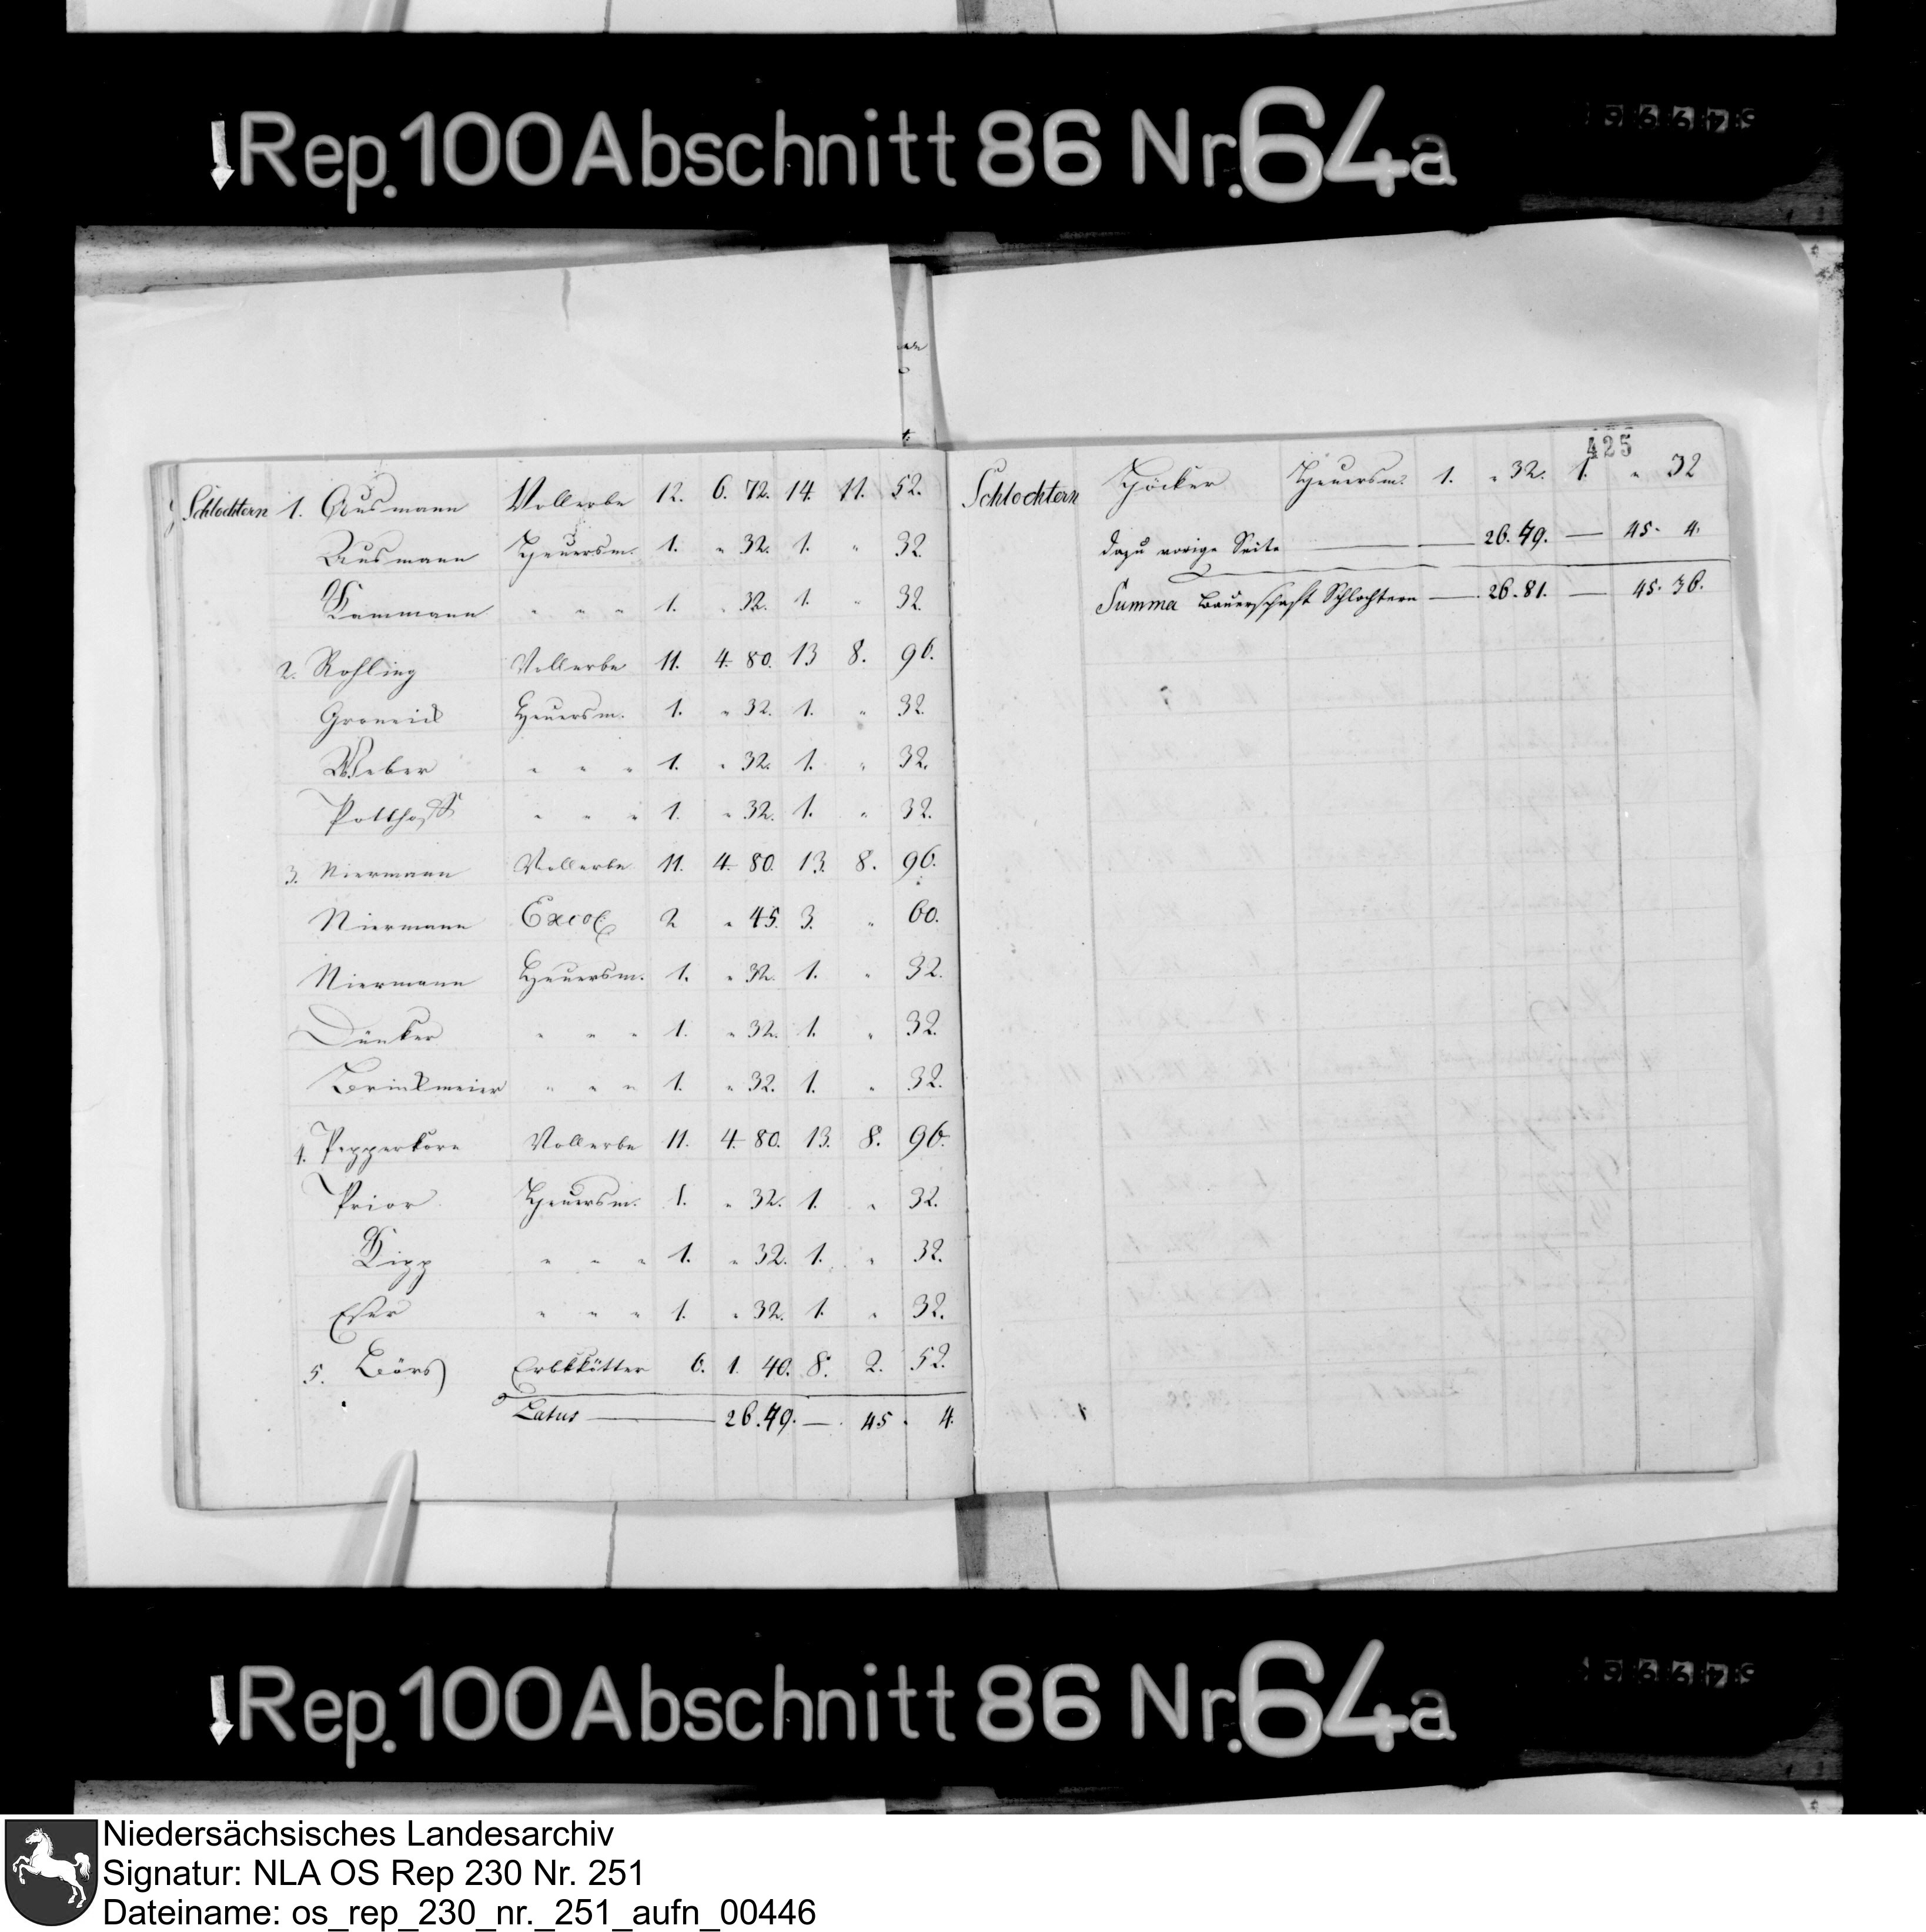 Rep. 100 Abschnitt 86 Nr. 64a
Schlochtern 1. Ausmann Vollerbe 12. 6. 72. 14. 11. 52.
Ausmann Heuersm. 1. " 32. 1. " 32.
Kammann " " " 1. " 32. 1. " 32.
2. Rohling Vollerbe 11. 4. 80. 13 8. 96.
Gronick Heuersm. 1. " 32. 1. " 32.
Weber " " " 1. " 32. 1. " 32.
Potthoff " " " 1. " 32. 1. " 32.
3. Niermann Vollerbe 11. 4. 80. 13. 8. 96.
Niermann 2 " 45. 3. " 60.
Niermann Heuersm. 1. " 32. 1. " 32.
Dünker " " " 1. " 32. 1. " 32.
Brinkmeier " " " 1. " 32. 1. " 32.
4. Pepperkorn Vollerbe 11. 4. 80. 13. 8. 96.
Prior Heuersm. 1. " 32. 1. " 32.
Kipp " " " 1. " 32. 1. " 32.
Esser " " " 1. " 32. 1. " 32.
5. Börs Erbkötter 6. 1. 40. 8. 2. 52.
Latus — 26. 49. — 45. 4.
425
Schlochtern Höcker Heuersm. 1. " 32. 1. " 32
dazu vorige Seite — 26. 49. — 45. 4.
Summa Bauerschaft Schlochtern — 26. 81. — 45. 36.
Rep. 100 Abschnitt 86 Nr. 64a
Niedersächsisches Landesarchiv
Signatur: NLA OS Rep 230 Nr. 251
Dateiname: os_rep_230_nr._251_aufn_00446